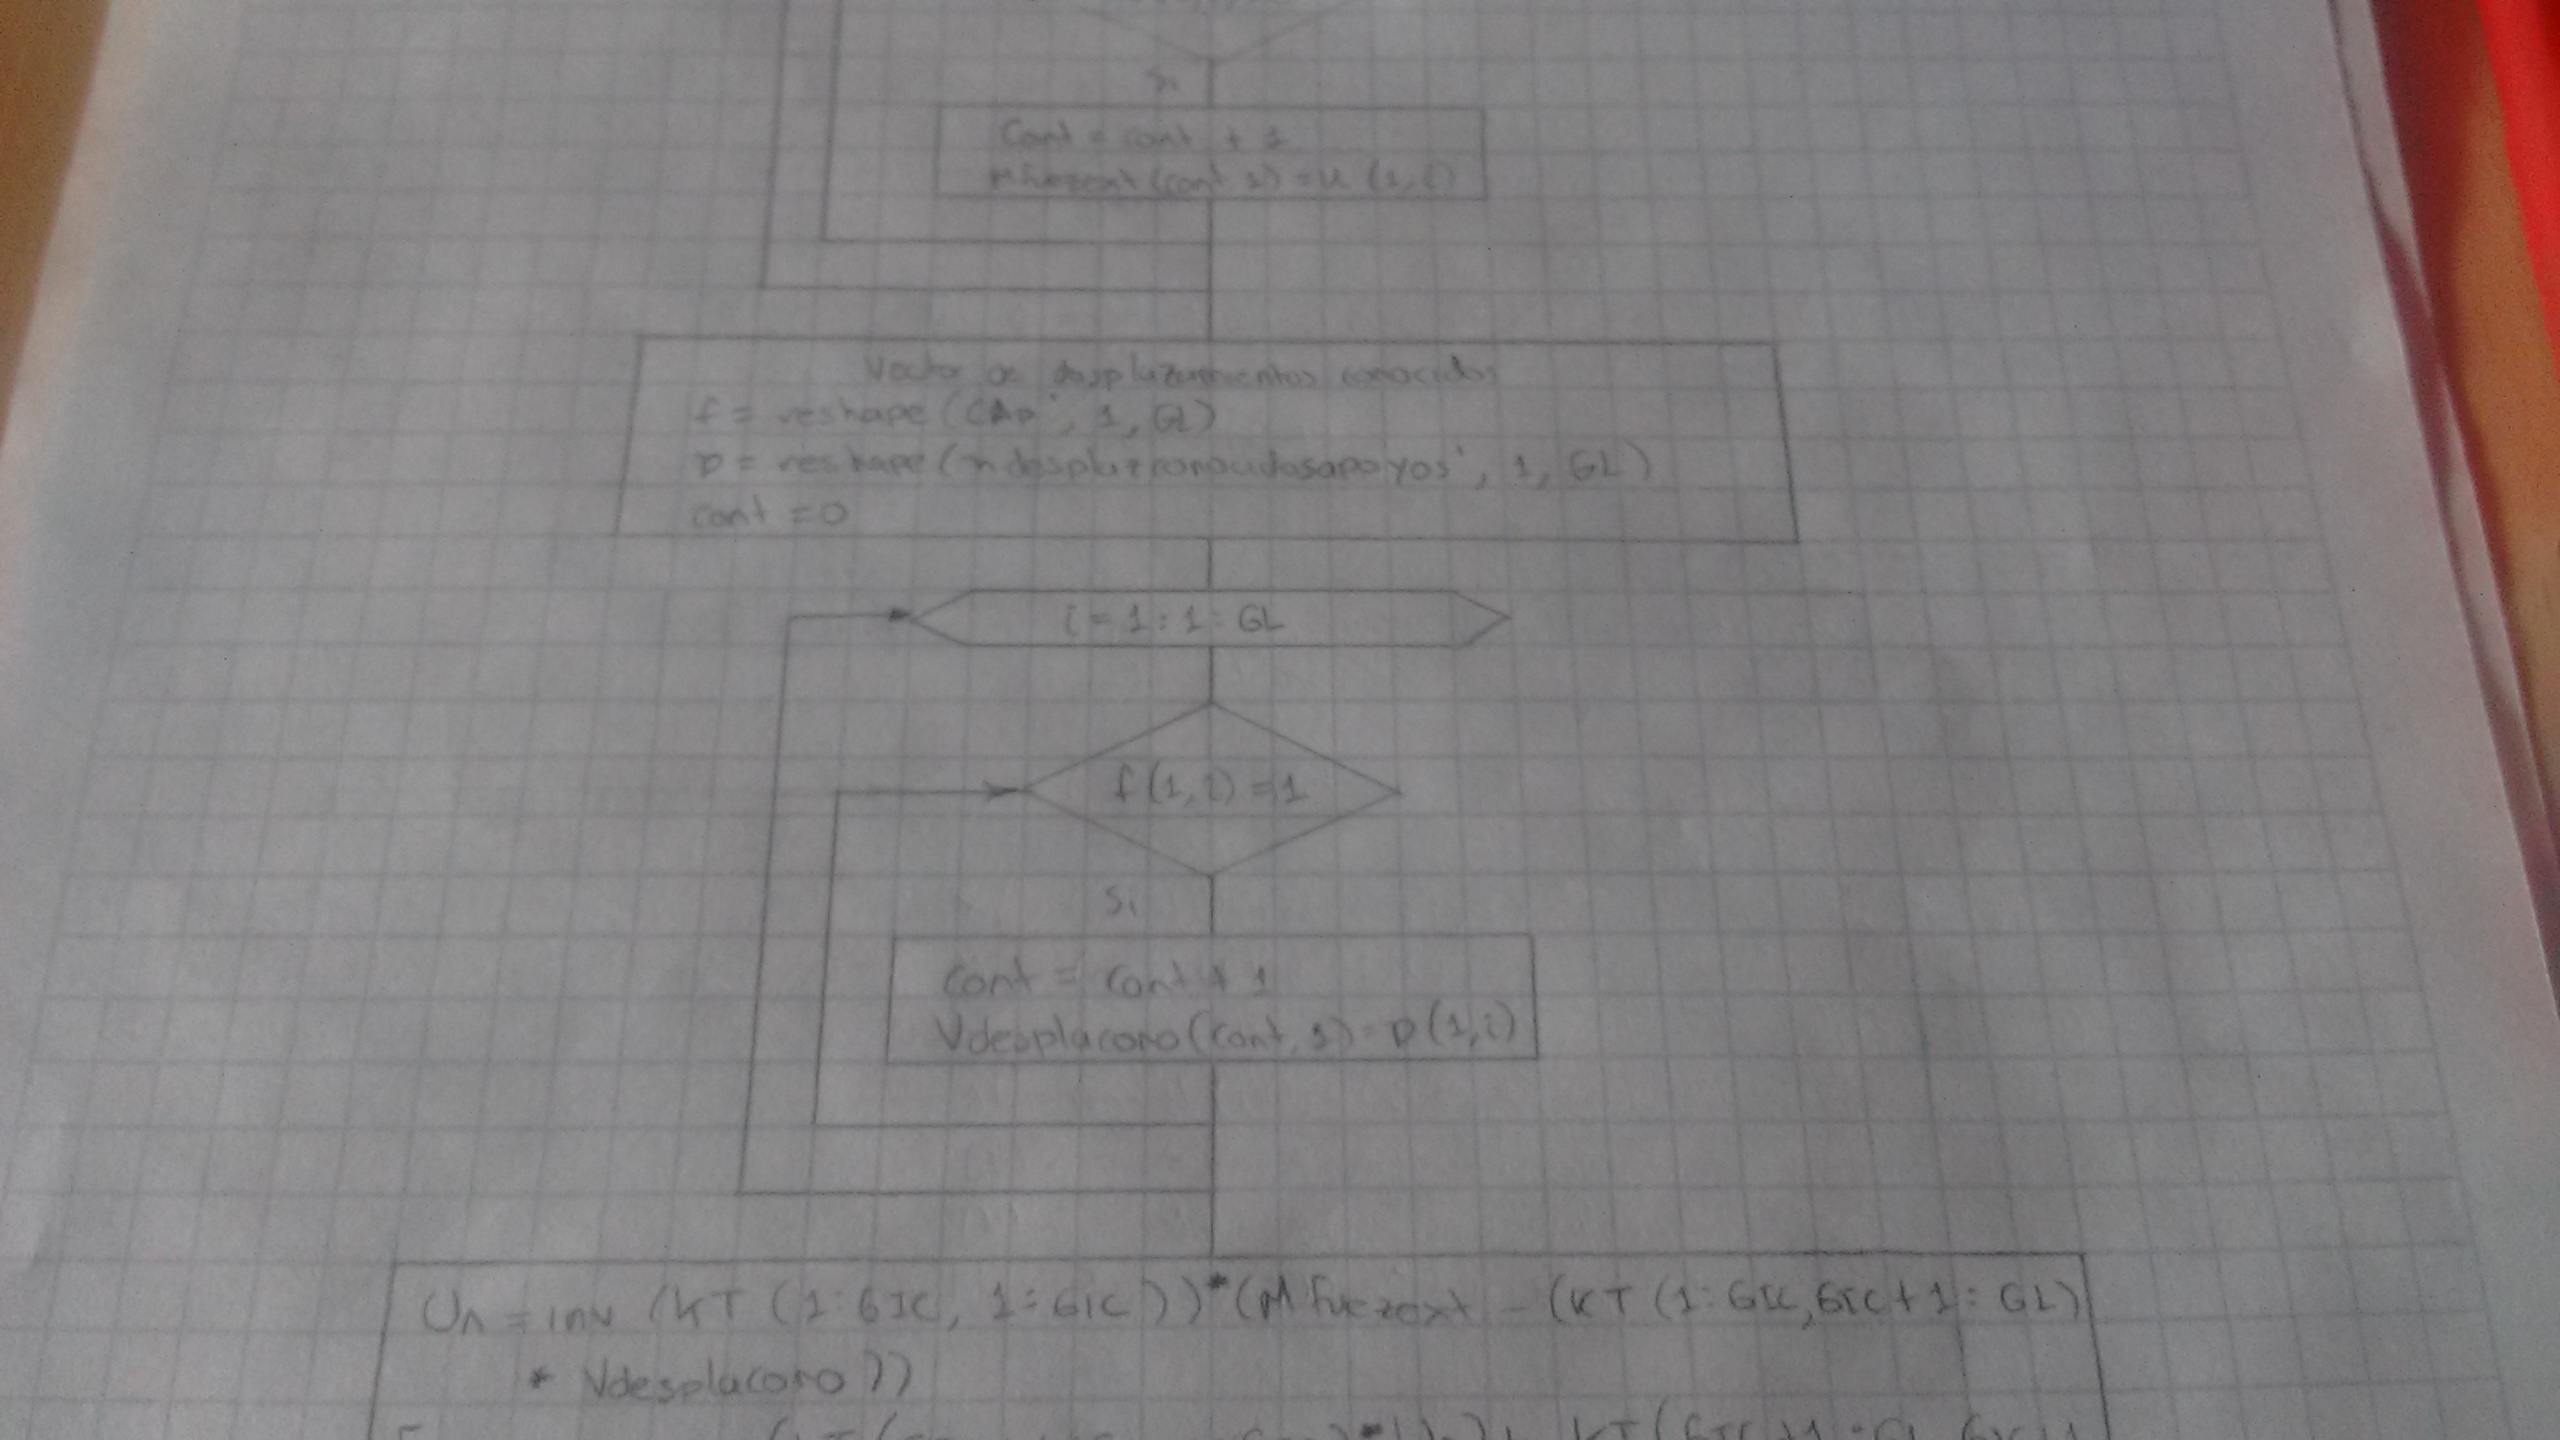 Si
Cont = cont + 1
(cont 1) = u (1, i)
Vector de desplazamientos conocidos
f = reshape (CAp', 1, GL)
D = reshape (mdesplazconocidosapoyos', 1, GL)
cont = 0
i = 1 : 1 : GL
f(1, i) = 1
Si
Cont = Cont + 1
Vdesplacono (Cont, 1) = D (1, i)
Un = inv (KT (1: GIC, 1: GIC)) * (Mfuezext - (KT (1: GIC, GIC+1: GL)
* Vdesplacono))